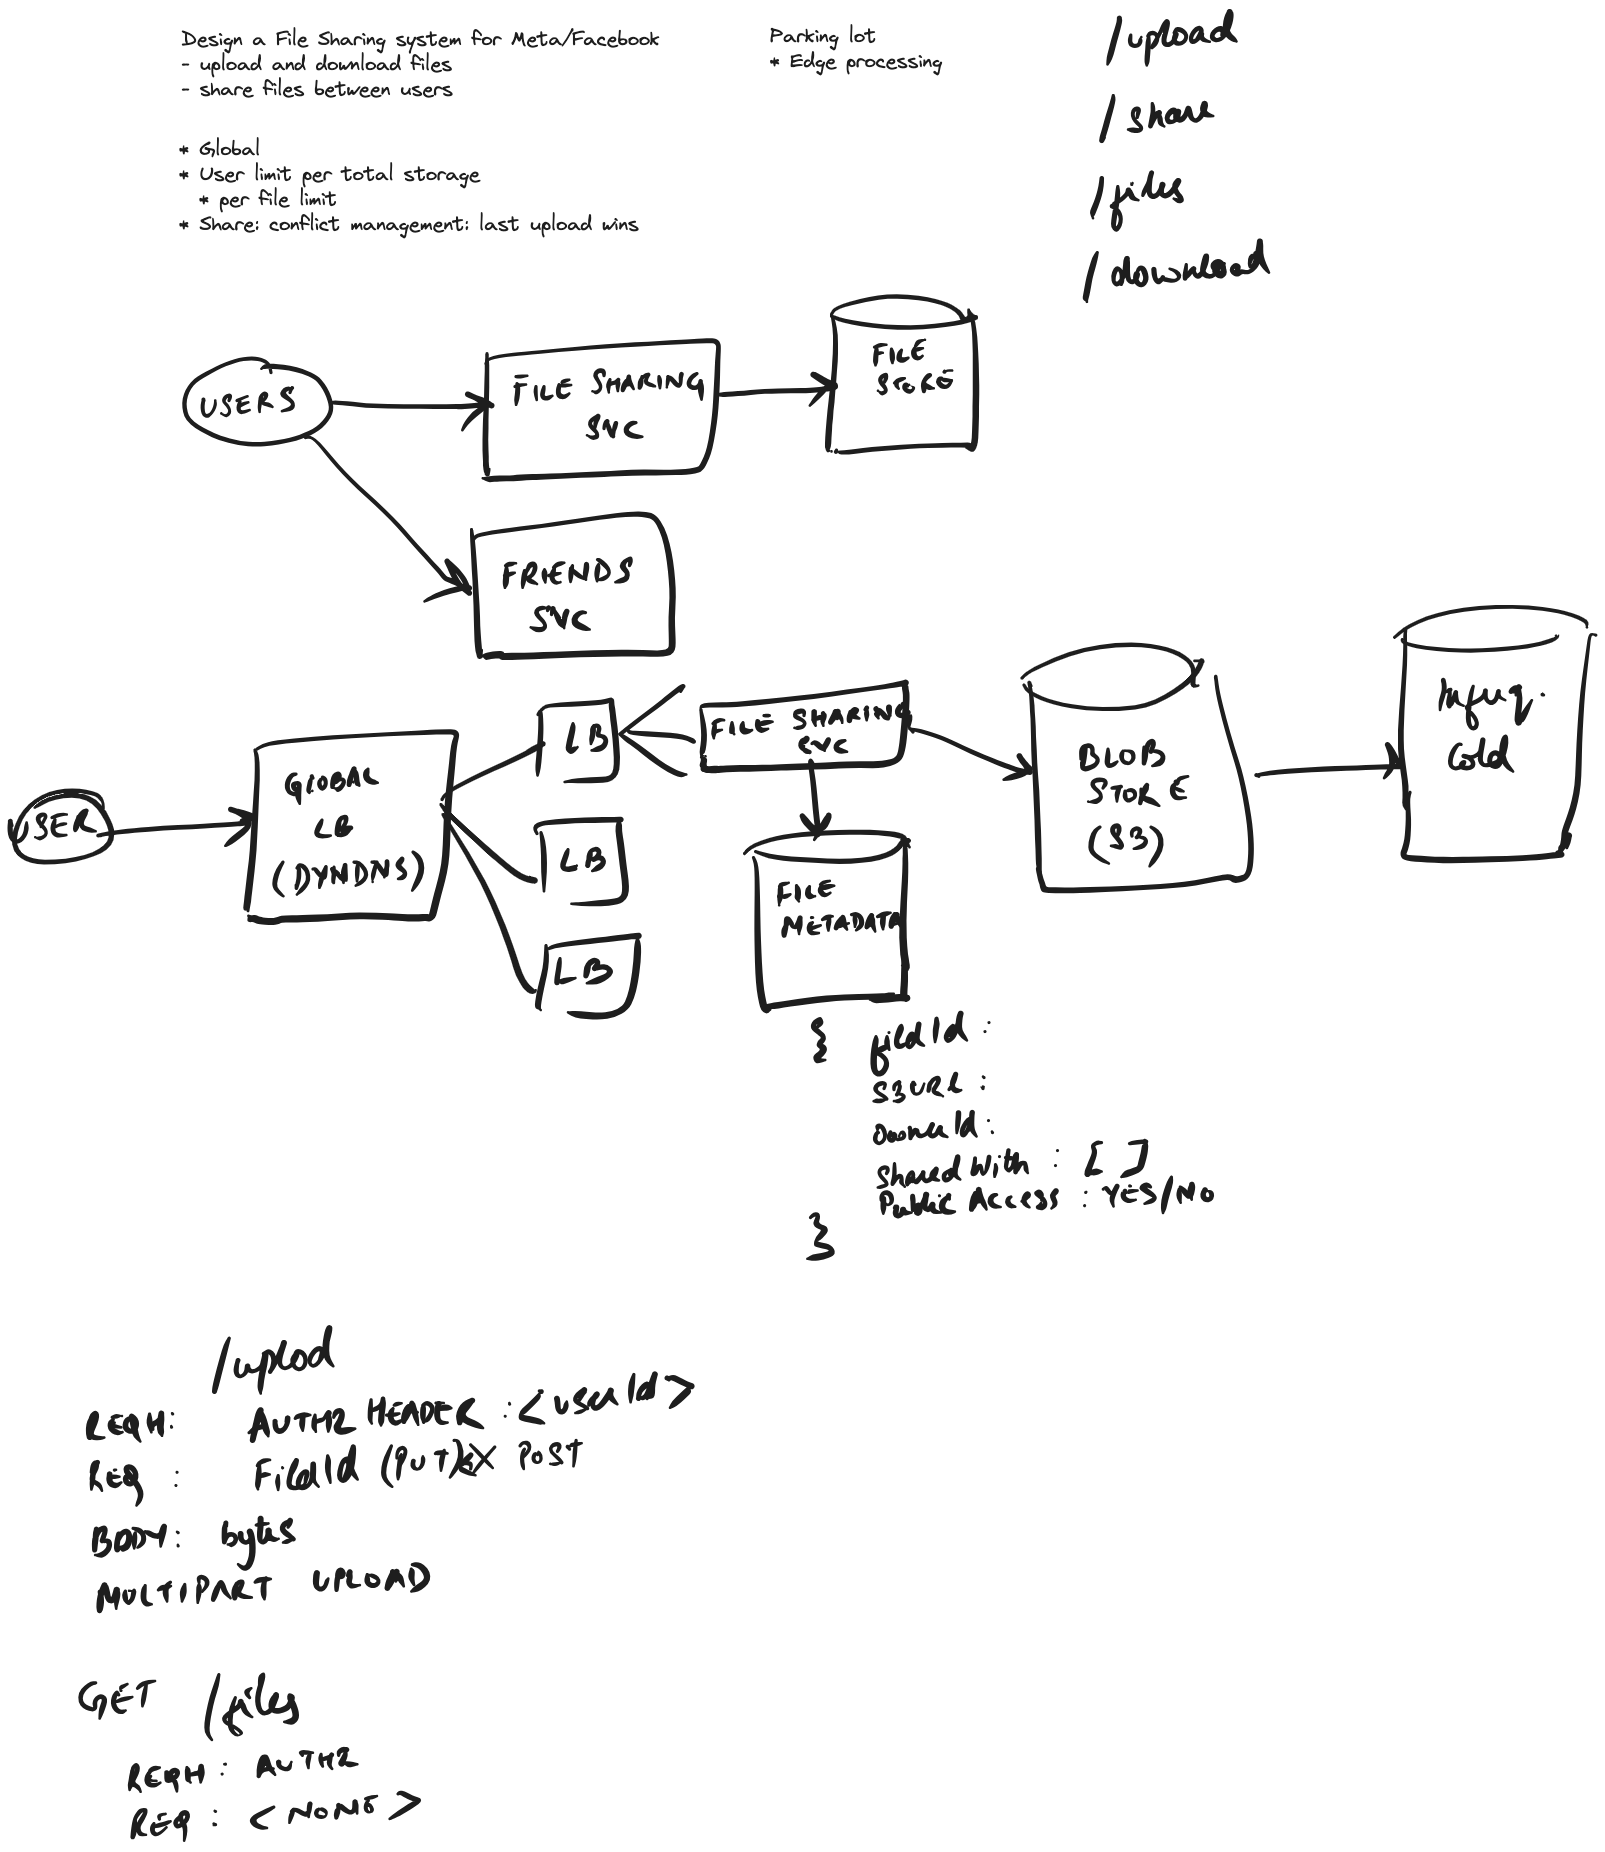 Design a File Sharing system for Meta/Facebook
- upload and download files
- share files between users
* Global
* User limit per total storage
* per file limit
* Share: conflict management: last upload wins
Parking lot
* Edge processing
/upload
/share
/files
/download
USERS
FILE SHARING
SVC
FILE
STORE
FRIENDS
SVC
USER
GLOBAL
LB
(DYNDNS)
LB
LB
LB
FILE SHARING
SVC
FILE
METADATA
BLOB
STORE
(S3)
Infreq.
Cold
{
fileId :
S3URL :
OwnerId :
Shared With : [ ]
Public Access : YES/NO
}
/uplod
REQH: AUTHZ HEADER : <userId>
REQ : FileId (PUT) X POST
BODY: bytes
MULTIPART UPLOAD
GET /files
REQH : AUTHZ
REQ : <NONE>